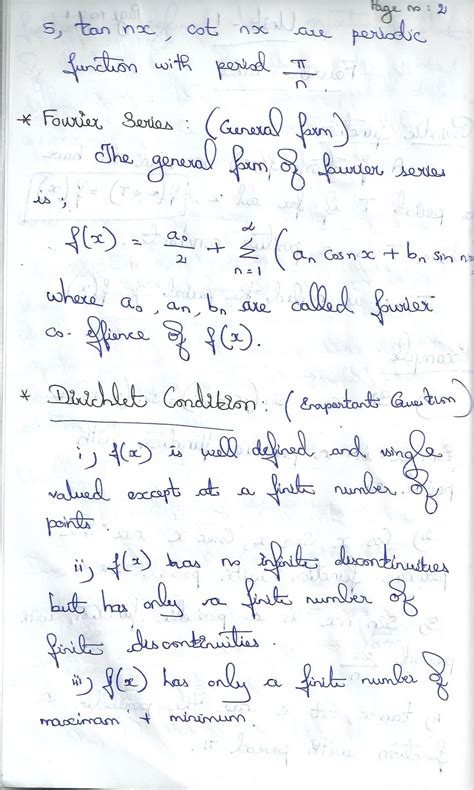 Page no: 2
5, tan nx, cot nx are periodic
function with period π/n.
* Fourier Series: (General form)
The general form of fourier series
is;
f(x) = a₀/2 + ∑_{n=1}^{∝} (aₙ cos nx + bₙ sin nx
where a₀, aₙ, bₙ are called fourier
co-effience of f(x).
* Dirichlet Condition: (Emportant Question)
i, f(x) is well defined and single
valued except at a finite number of
points.
ii, f(x) has no infinite discontinuities
but has only a finite number of
finite discontinuities.
iii, f(x) has only a finite number of
maximam + minimum.